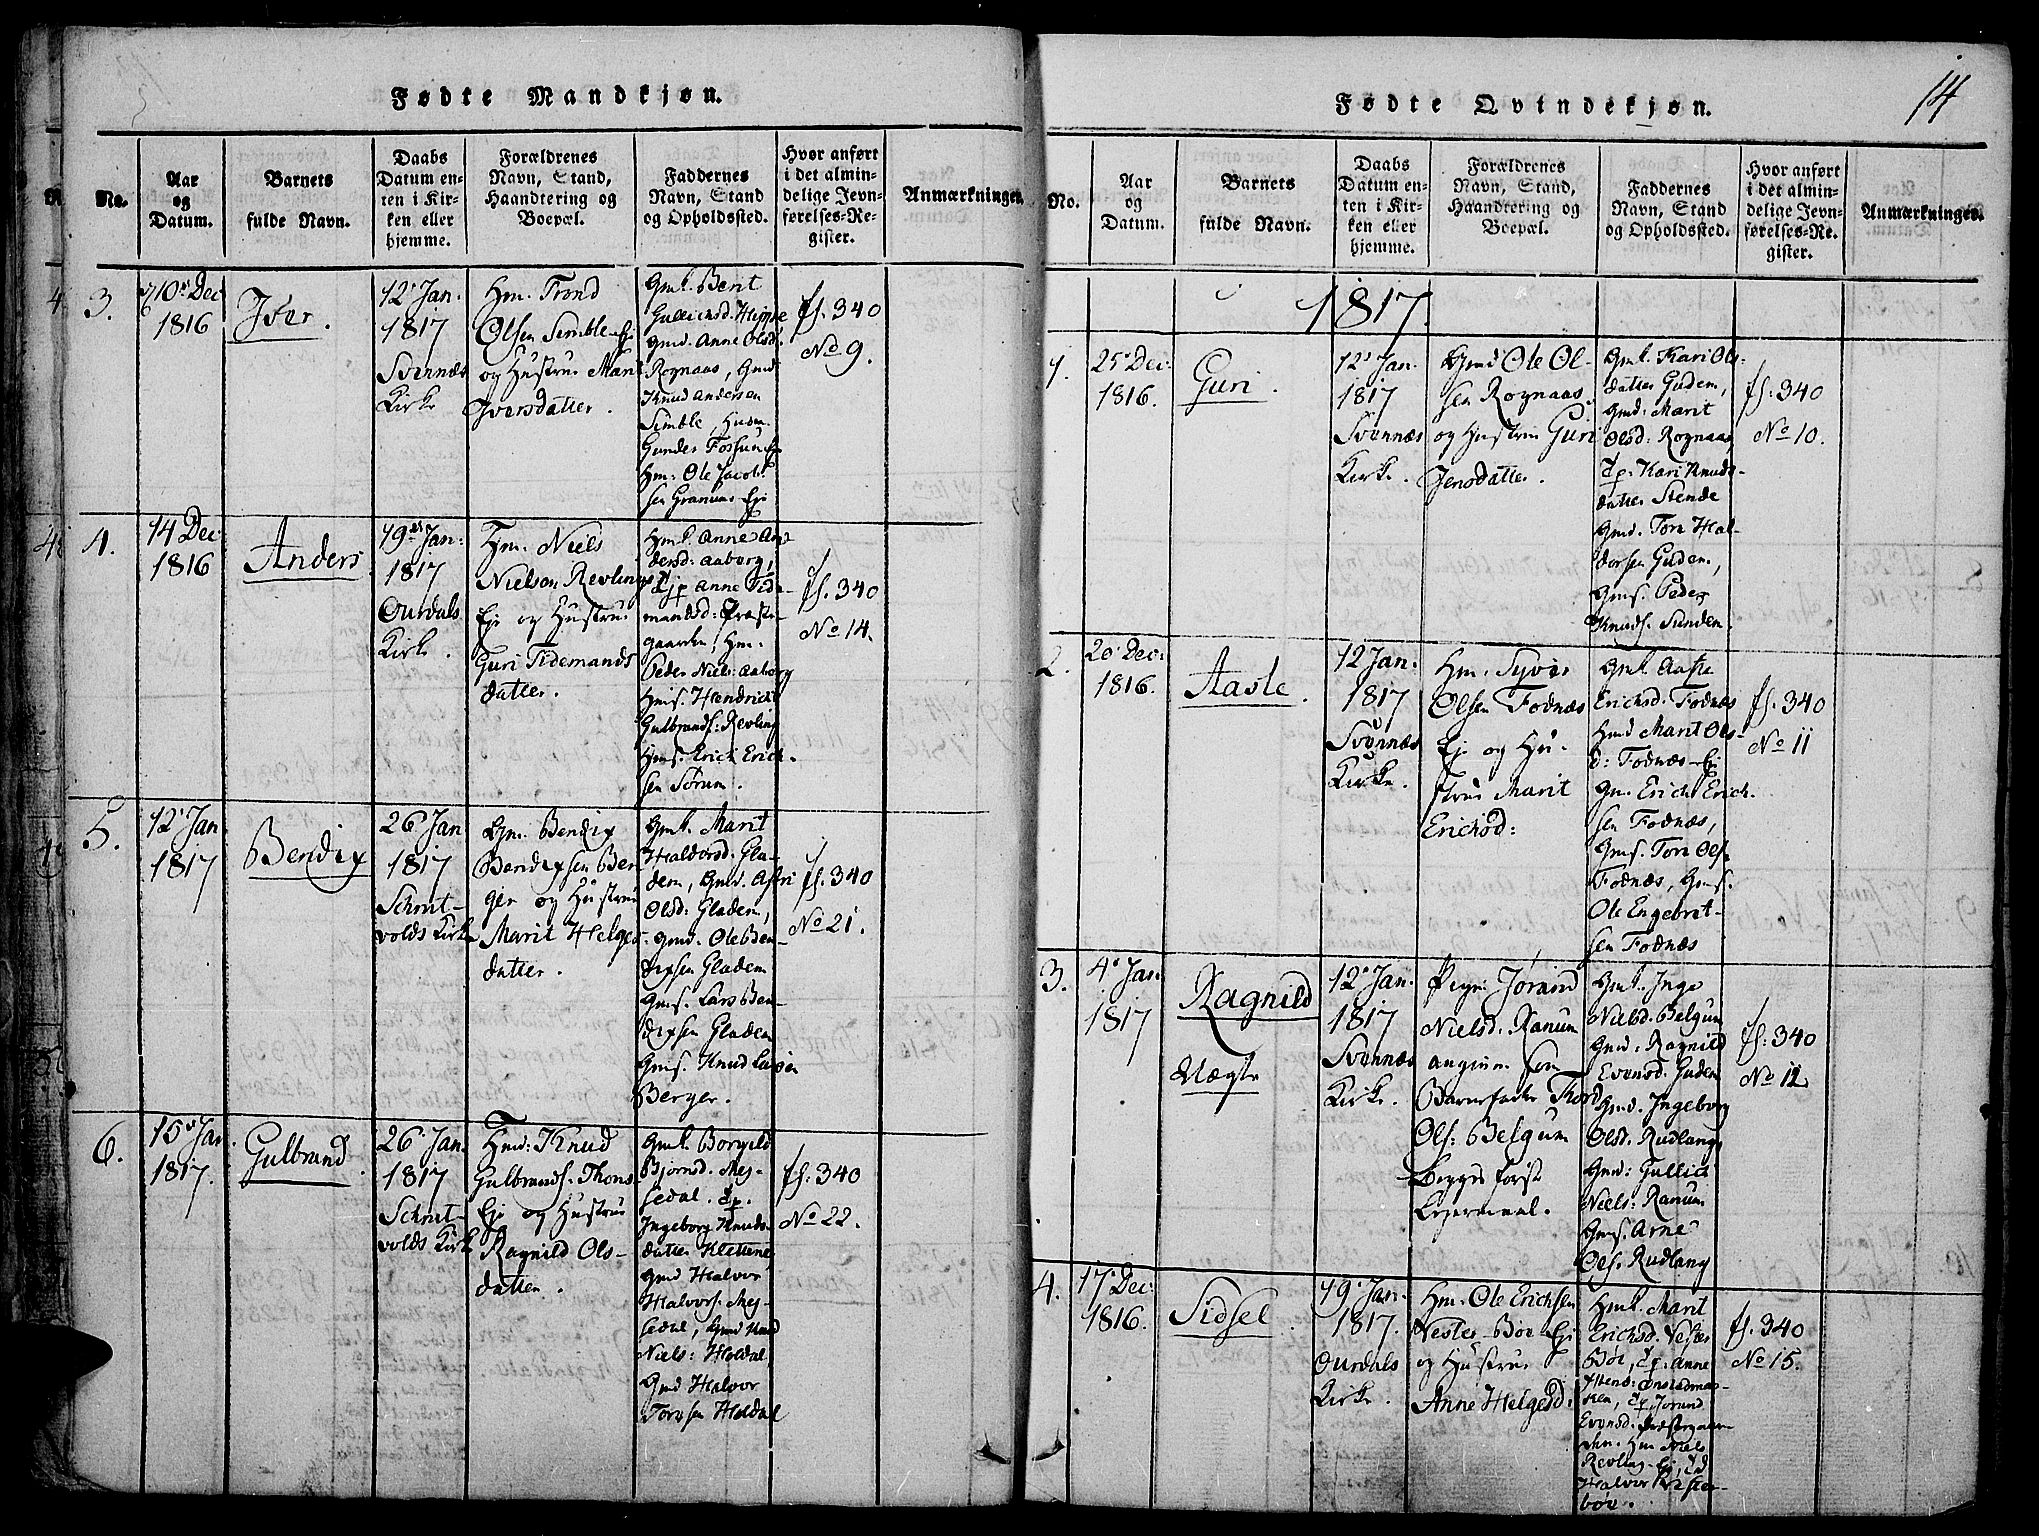 Fødte Mandkjøn.
No.
Aar
og
Datum.
Barnets
fulde Navn.
Daabs
Datum en-
ten i Kir-
ken eller
hjemme.
Forældrenes
Navn, Stand,
Haandtering og
Boepæl.
Faddernes
Navn, Stand
og Opholdssted.
Hvor anført
i det almin-
delige Jevn-
førelses-Re-
gister.
Anmærkninger.
3.
10 Dec
1816
Iver.
12 Jan.
1817
Svennæs
Kirke
Hm. Trond
Olsen Semble Eje
og Hustrue Mari
Iversdatter.
Gmk. Berit
Gullichsd. Hippe
Gmd. Anne Olsd.
Rognaas, Gmd
Knud Andersen
Semble, Husm.
Gunder Fossum Eje
Hm. Ole Jacob
sen Granum Eje
fs. 340
No 9.
4.
14 Dec
1816
Anders
19 Jan.
1817
Ourdals
Kirke.
Hm. Niels
Nielsen Revling
Eje og Hustrue
Guri Tidemands
datter.
Hmk. Anne An
dersd: Aaborg,
Anne Tide-
mandsd: Præste-
gaarden, Hm.
Peder Niels: Aaborg
Hms. Hendrich
Gulbrands: Revling
Hms. Erich Erich
sen Sørum.
fs. 340
No 14.
5.
12 Jan
1817
Bendix
26 Jan
1817
Schrut-
volds Kirke
Gm. Bendix
Bendixsen Ber
ger og Hustrue
Marit Helges
datter.
Gmk. Marit
Haldorsd. Gla-
dem, Gmd. Astri
Olsd: Gladem,
Gmd. Ole Ben-
dixsen Gladem
Gms. Lars Ben-
dixsen Gladem
Gms. Knud Larsen
Berger.
fs. 340
No 21.
6.
15 Jan.
1817.
Gulbrand.
26 Jan.
1817
Schrut-
volds Kirke
Hmd: Knud
Gulbrands. Thons
Eje og Hustrue
Ragnild Ols-
datter.
Gmk. Borgild
Bjørnsd. Mes-
sedal.
Ingeborg Knuds-
datter Klettene
Gmd Halvor
Halvors. Mes-
sedal, Gmd Knud
Niels: Holdal
Gmd Halvor
Toresen Holdal
fs. 340
No 22.
Fødte Qvindekjøn.
14
No.
Aar
og
Datum.
Barnets
fulde Navn.
Daabs
Datum en-
ten i Kir-
ken eller
hjemme.
Forældrenes
Navn, Stand,
Haandtering og
Boepæl.
Faddernes
Navn, Stand
og Opholdssted.
Hvor anført
i det almin-
delige Jevn-
førelses-Re-
gister.
Anmærkninger.
1817.
1.
25 Dec:
1816.
Guri.
12 Jan.
1817
Svennæs
Kirke.
Gmd Ole Ol-
sen Rognaas
og Hustrue Guri
Jensdatter.
Gmk. Kari Ols-
datter Gudem,
Gmd: Marit
Olsd: Rognaas,
Kari Knuds-
datter Stende
Gmd. Tore Hal-
dorsen Gudem,
Gms. Peder
Knuds. Sundem.
fs. 340
No 10.
2.
20 Dec:
1816.
Aaste.
12 Jan.
1817
Svennæs
Kirke.
Hm. Syver
Olsen Fodnæs
Eje og Hu-
strue Marit
Erichsd:
Gmk Aaste
Erichsd. Fodnæs
Hmd Marit Ols-
d: Fodnæs Eje
Gm. Erich Erich.
sen Fodnæs,
Gms. Tore Ols.
Fodnæs, Gms.
Ole Engebret-
sen Fodnæs
fs. 340
No 11
3.
4 Jan.
1817
Ragnild
Uægte
12 Jan.
1817
Svennæs
Kirke.
Pigen Jørand
Nielsd. Ranum
angiven som
Barnefader Thord
Ols: Belgum
begges første
Leiermaal.
Gmk. Inge
Nielsd. Belgum
Gmd: Ragnild
Evensd. Gudem
Gmd. Ingeborg
Olsd. Rudlang,
Gmd: Gullich
Niels: Ranum
Gms. Arne
Ols. Rudlang
fs: 340
No 12
4.
17 Dec:
1816.
Sidsel.
19 Jan.
1817.
Ourdals
Kirke.
Hm. Ole Erichsen
Vester Bøe Eje
og Hustrue
Anne Helgesd:
Hmk. Marit
Erichsd. Vester
Bøe, Anne
Jørand
Evensd. Præstegaar
den. Hm Niels
Revling Eje,
Halvor Vester-
bøe.
fs. 340
No 15.